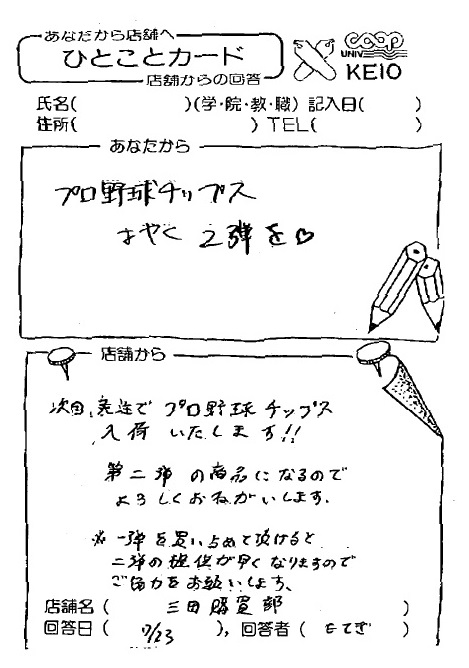 あなたから店舗へ
ひとことカード
店舗からの回答
UNIV CO-OP
KEIO
氏名(　　　　)(学・院・教・職) 記入日(　　)
住所(　　　　) TEL(　　　　)
あなたから
プロ野球チップス
はやく 2弾を♡
店舗から
次回発注で プロ野球チップス
入荷 いたします!!
第二弾 の商品になるので
よろしくおねがいします。
※一弾を買い占めて頂けると
二弾の提供が早くなりますので
ご協力をお願いします。
店舗名( 三田購買部 )
回答日( 7/23 ), 回答者( もてぎ )